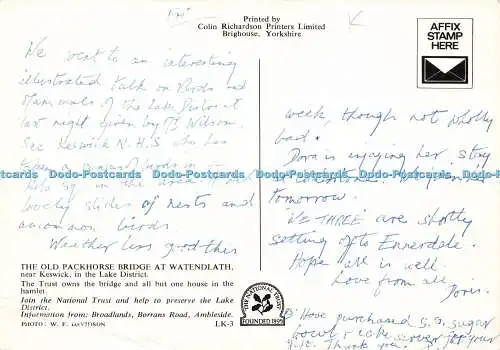 Printed by
Colin Richardson Printers Limited
Brighouse, Yorkshire
AFFIX
STAMP
HERE
We went to an interesting
illustrated talk on Birds and
Mammals of the Lake District
last night given by Wilson.
Sec Keswick N.H.S. who has
taken
in the area
lovely slides of nests and
uncommon birds.
Weather less good this
week, though not wholly
bad.
Dora is enjoying her stay
tomorrow.
WE THREE are shortly
setting off to Ennerdale.
Hope all is well.
Love from all,
Doris.
Have purchased S.S. sugar
bowl for your
Thank you.
Dodo-Postcards Dodo-Postcards Dodo-Postcards Dodo-Postcards Dodo-Postcards Dodo-Postcards
THE OLD PACKHORSE BRIDGE AT WATENDLATH,
near Keswick, in the Lake District.
The Trust owns the bridge and all but one house in the
hamlet.
Join the National Trust and help to preserve the Lake
District.
Information from: Broadlands, Borrans Road, Ambleside.
PHOTO: W. F. DAVIDSON LK-3
THE NATIONAL TRUST
FOUNDED 1895